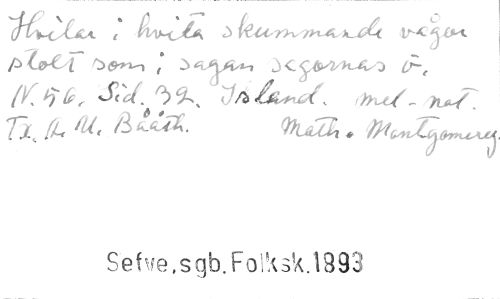 Hvilar i hvita skummande vågor
stolt som i sagan segornas ö.
N. 56. Sid. 32. Island. mel-not.
Tx. A. U. Bååth. Math. Montgomery.
Sefve, sgb. Folksk. 1893